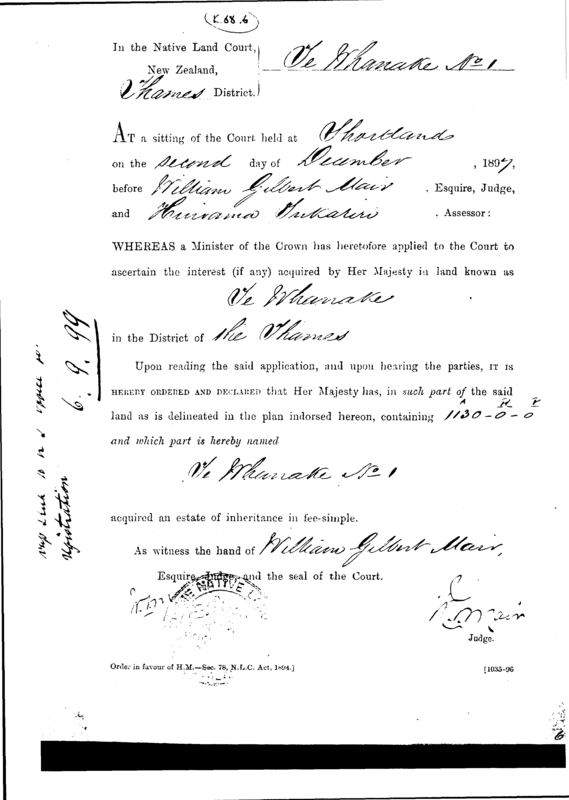 K.68.6
In the Native Land Court, Te Whanake No 1
New Zealand,
Thames District.
AT a sitting of the Court held at Shortland
on the second day of December , 1897,
before William Gilbert Mair . Esquire, Judge,
and . Assessor:
WHEREAS a Minister of the Crown has heretofore applied to the Court to
ascertain the interest (if any) acquired by Her Majesty in land known as
Te Whanake
in the District of the Thames
Upon reading the said application, and upon hearing the parties, IT IS
HEREBY ORDERED AND DECLARED that Her Majesty has, in such part of the said
A R P
land as is delineated in the plan indorsed hereon, containing 1130-0-0
and which part is hereby named
Te Whanake No 1
acquired an estate of inheritance in fee-simple.
As witness the hand of William Gilbert Mair,
Esquire, Judge, and the seal of the Court.
NATIVE
Mair
Judge.
Order in favour of H.M.—Sec. 78, N.L.C. Act, 1894.] [1035-96
Registration
6.9.99